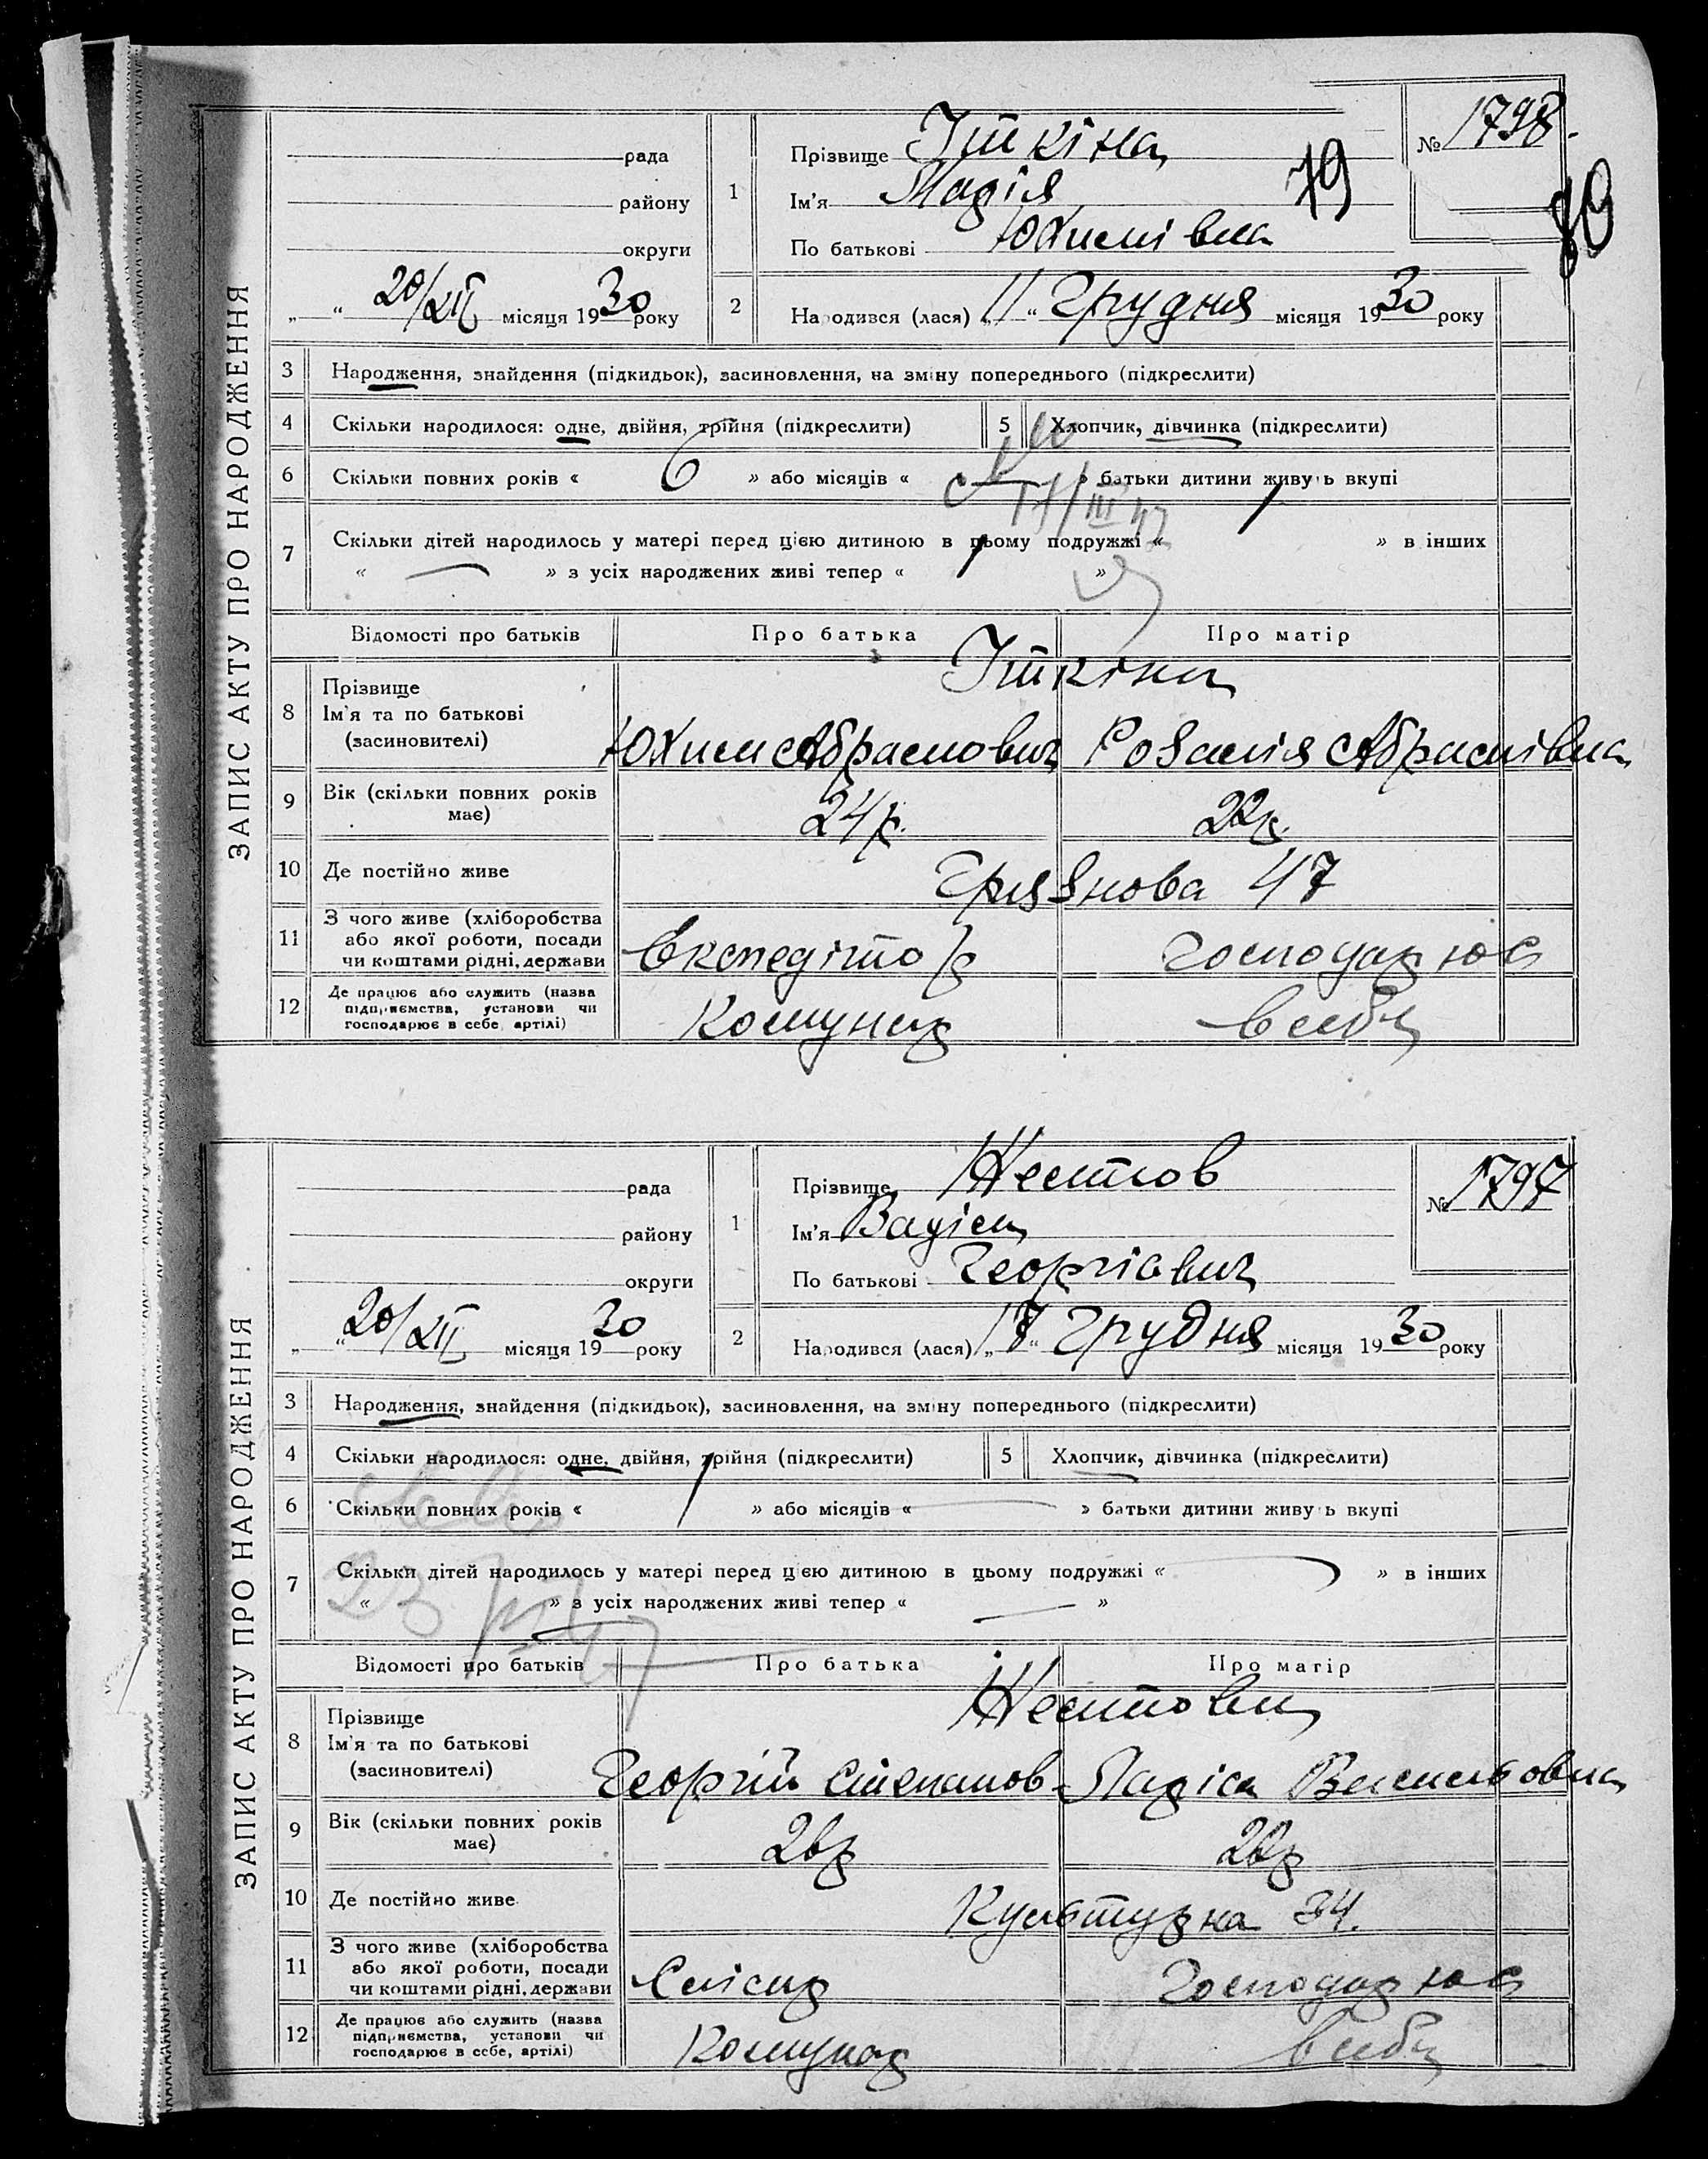 ЗАПИС АКТУ ПРО НАРОДЖЕННЯ
рада
району
округи
„ “ 20/XII місяця 1930 року
1 Прізвище Іткіна
Ім'я Марія
По батькові Юхимівна
№ 1798.
79
80
2 Народився (лася) „11“ Грудня місяця 1930 року
3 Народження, знайдення (підкидьок), засиновлення, на зміну попереднього (підкреслити)
4 Скільки народилося: одне, двійня, трійня (підкреслити)
5 Хлопчик, дівчинка (підкреслити)
6 Скільки повних років « 6 » або місяців « — » батьки дитини живуть вкупі
17/III 47
7 Скільки дітей народилось у матері перед цією дитиною в цьому подружжі « 1 » в інших
« — » з усіх народжених живі тепер « 1 »
Відомості про батьків Про батька Про матір
8 Прізвище
Ім'я та по батькові
(засиновителі)
Іткіни
Юхим Абрамович Розалія Абрамівна
9 Вік (скільки повних років має) 24 р. 22 р.
10 Де постійно живе Грязнова 47
11 З чого живе (хліборобства
або якої роботи, посади
чи коштами рідні, держави
Експедітор Господарює
12 Де працює або служить (назва
підприємства, установи чи
господарює в себе, артілі)
Комунар в себе
ЗАПИС АКТУ ПРО НАРОДЖЕННЯ
рада
району
округи
„ “ 20/XII місяця 1930 року
1 Прізвище Жестков
Ім'я Вадім
По батькові Георгіевич
№ 1797
2 Народився (лася) „17“ Грудня місяця 1930 року
3 Народження, знайдення (підкидьок), засиновлення, на зміну попереднього (підкреслити)
4 Скільки народилося: одне, двійня, трійня (підкреслити)
5 Хлопчик, дівчинка (підкреслити)
6 Скільки повних років « 1 » або місяців « — » батьки дитини живуть вкупі
7 Скільки дітей народилось у матері перед цією дитиною в цьому подружжі « — » в інших
« — » з усіх народжених живі тепер « — »
Відомості про батьків Про батька Про матір
8 Прізвище
Ім'я та по батькові
(засиновителі)
Георгій Степанов. Лариса
9 Вік (скільки повних років має) 26 р
10 Де постійно живе Культурна 34.
11 З чого живе (хліборобства
або якої роботи, посади
чи коштами рідні, держави
Слісар Господарює
12 Де працює або служить (назва
підприємства, установи чи
господарює в себе, артілі)
Комунар в себе